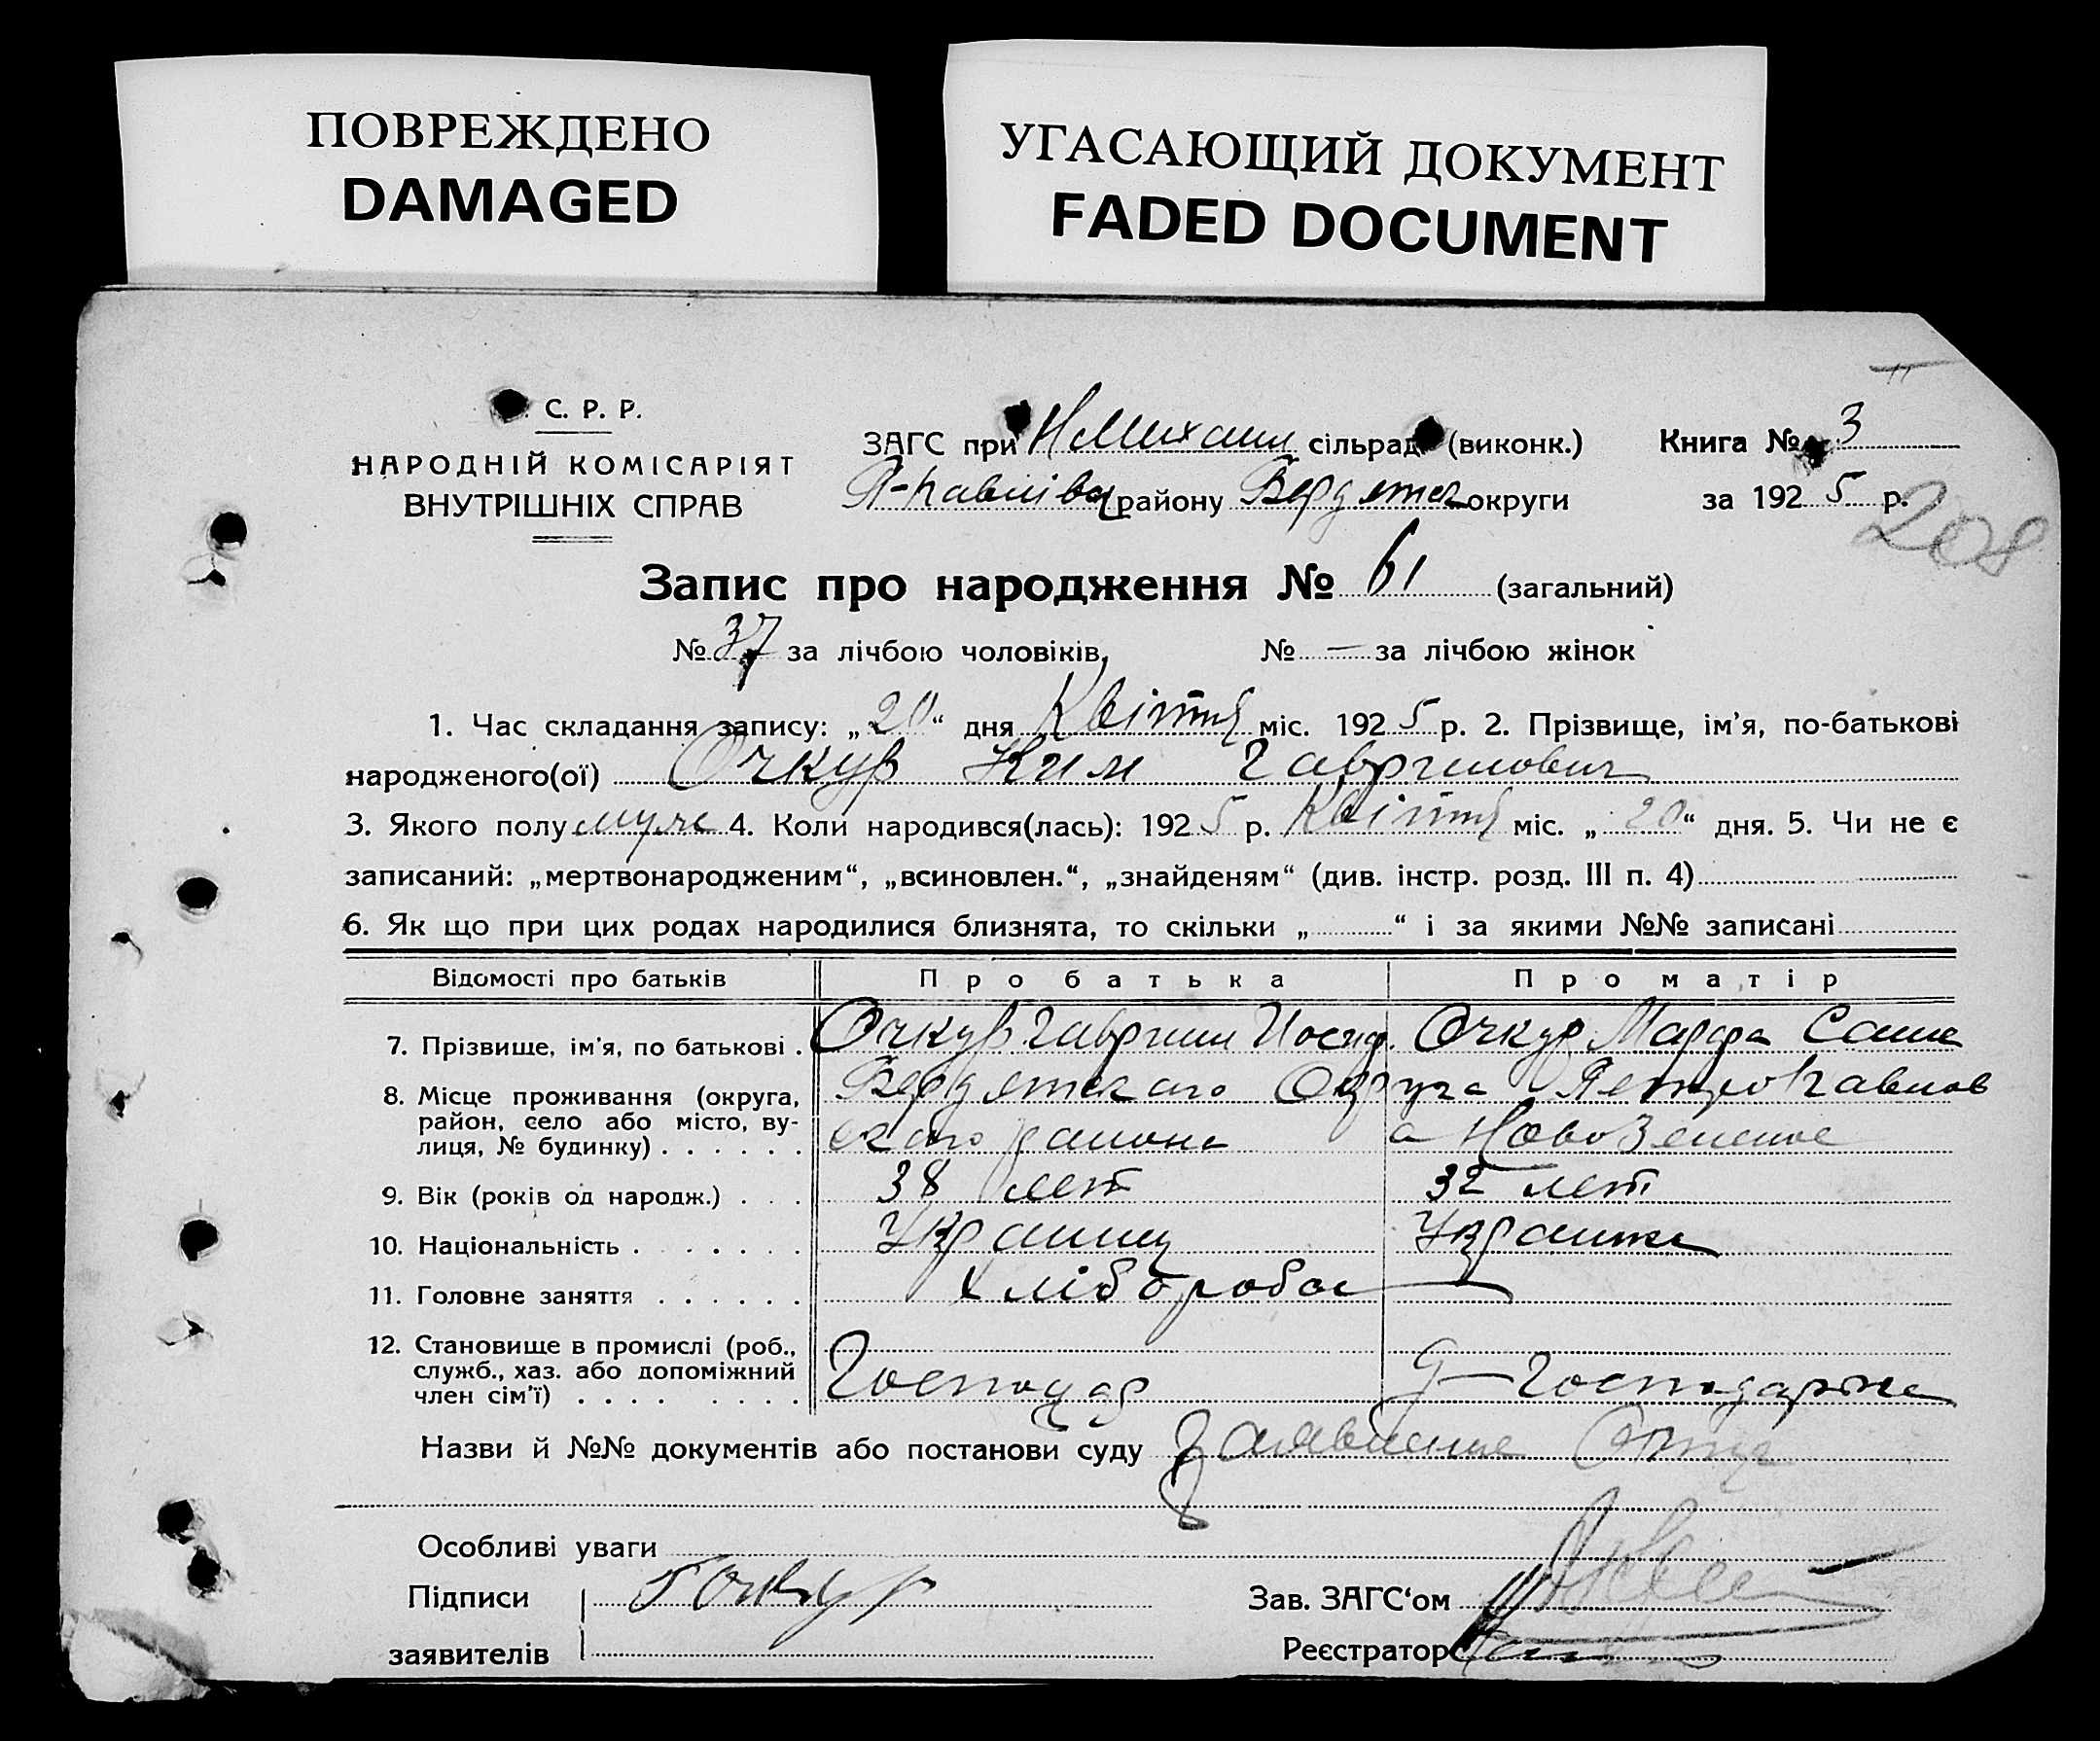 ПОВРЕЖДЕНО
DAMAGED
УГАСАЮЩИЙ ДОКУМЕНТ
FADED DOCUMENT
С. Р. Р.
НАРОДНІЙ КОМІСАРІЯТ
ВНУТРІШНІХ СПРАВ
ЗАГС при НМихайл сільрад (виконк.)
П-Павлівск району Бердянск округи
Книга № 3
за 1925 р.
208
Запис про народження № 61 (загальний)
№ 37 за лічбою чоловіків, № — за лічбою жінок
1. Час складання запису: „20“ дня Квітня міс. 1925 р. 2. Прізвище, ім'я, по-батькові
народженого(ої) Очкур Ким Гаврилович
3. Якого полу муж 4. Коли народився(лась): 1925 р. Квітня міс. „20“ дня. 5. Чи не є
записаний: „мертвонародженим“, „всиновлен.“, „знайденям“ (див. інстр. розд. III п. 4)
6. Як що при цих родах народилися близнята, то скільки „ “ і за якими №№ записані
Відомості про батьків Про батька Про матір
7. Прізвище, ім'я, по батькові . Очкур Гавриил Иосиф. Очкур Марфа
8. Місце проживання (округа, район, село або місто, вулиця, № будинку) . . . . . . Бердянского Округа Петропавлов
ского района Ново
9. Вік (років од народж.) . . . 38 лет 32 лет
10. Національність . . . . . . Украинец Украинка
11. Головне заняття . . . . . . Хліборобы
12. Становище в промислі (роб., служб., хаз. або допоміжний член сім'ї) . . . . . . . . Господар Господарка
Назви й №№ документів або постанови суду Заявление Отца
Особливі уваги
Підписи Гочкур Зав. ЗАГС'ом
заявителів Реєстратор